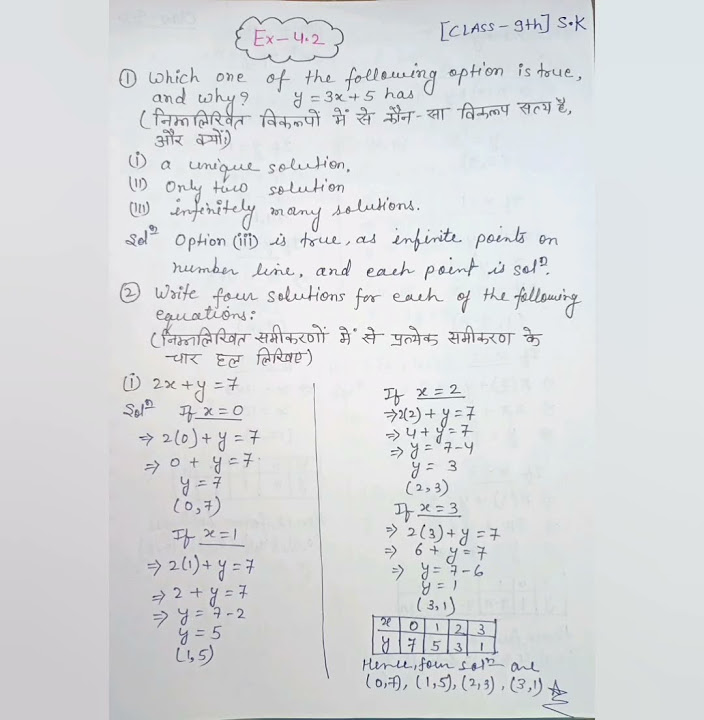 Ex-4.2
[CLASS-9th] S.K
① Which one of the following option is true,
and why? y = 3x+5 has
(निम्नलिखित विकल्पों में से कौन-सा विकल्प सत्य है,
और क्यों?)
(i) a unique solution.
(ii) Only two solution
(iii) infinitely many solutions.
Solⁿ Option (iii) is true, as infinite points on
number line, and each point is solⁿ.
② Write four solutions for each of the following
equations:
(निम्नलिखित समीकरणों में से प्रत्येक समीकरण के
चार हल लिखिए)
(i) 2x+y=7
Solⁿ If x=0
⇒ 2(0)+y=7
⇒ 0 + y=7
y=7
(0,7)
If x=1
⇒ 2(1)+y=7
⇒ 2+y=7
⇒ y=7-2
y=5
(1,5)
If x=2
⇒ 2(2)+y=7
⇒ 4+y=7
⇒ y= 7-4
y= 3
(2,3)
If x=3
⇒ 2(3)+y=7
⇒ 6+y=7
⇒ y=7-6
y=1
(3,1)
x 0 1 2 3
y 7 5 3 1
Hence, four solⁿ are
(0,7), (1,5), (2,3), (3,1)